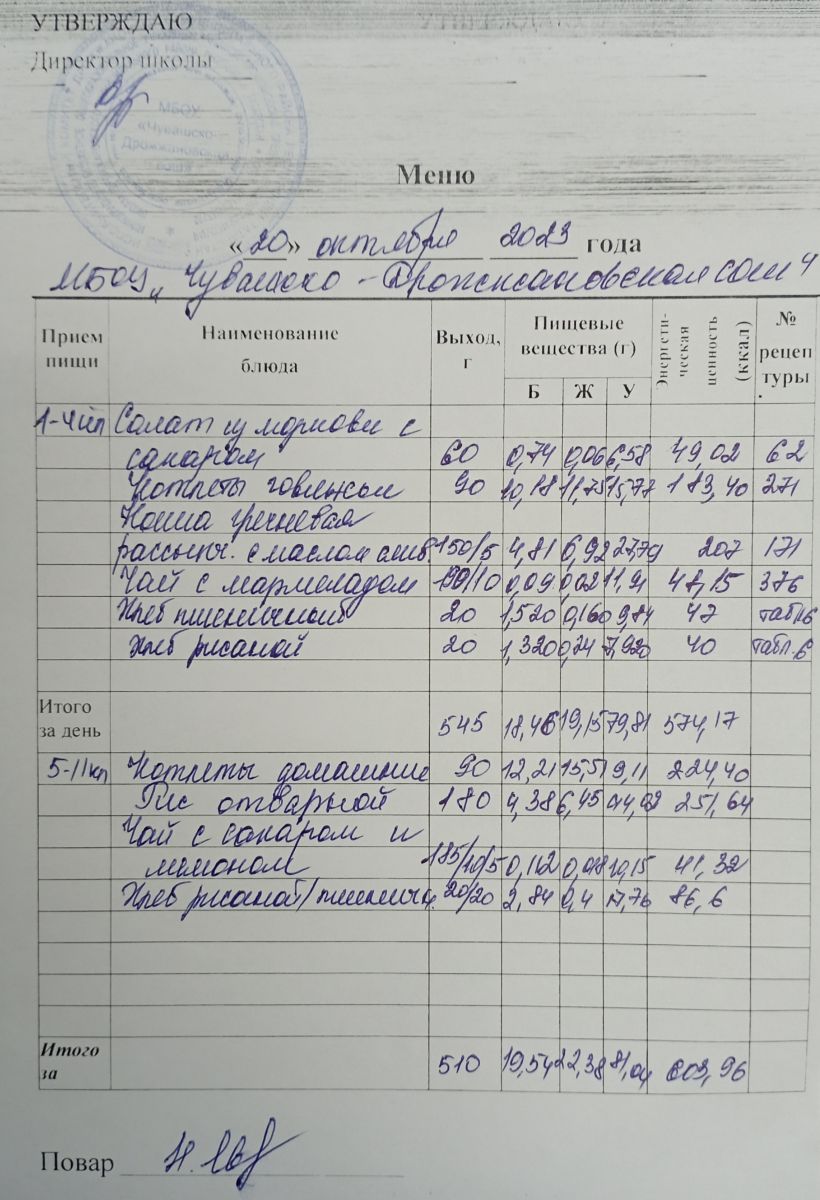 УТВЕРЖДАЮ
Директор школы
МБОУ
«Чувашско-
Дрожжановская
Меню
«20» октября 2023 года
МБОУ „Чувашско-Дрожжановская сош“
Прием пищи Наименование блюда Выход, г Пищевые вещества (г) Энергети-ческая ценность (ккал) № рецептуры
Б Ж У
1-4кл Салат из моркови с
сахаром 60 0,74 0,06 6,58 49,02 62
Котлеты говяжьи 90 10,18 11,75 15,77 183,40 271
Каша гречневая
рассыпч. с маслом слив. 150/5 4,81 6,92 27,79 207 171
Чай с мармеладом 190/10 0,09 0,02 11,91 47,15 376
Хлеб пшеничный 20 1,520 0,160 9,84 47 табл6
Хлеб ржаной 20 1,320 0,24 7,920 40 табл.6
Итого
за день 545 18,46 19,15 79,81 574,17
5-11кл Котлеты домашние 90 12,21 15,51 9,11 224,40
Рис отварной 180 4,38 6,45 44,02 251,64
Чай с сахаром и
лимоном 185/10/5 0,112 0,018 10,15 41,32
Хлеб ржаной/пшеничн. 20/20 2,84 0,4 17,76 86,6
Итого
за 510 19,54 22,38 81,04 603,96
Повар